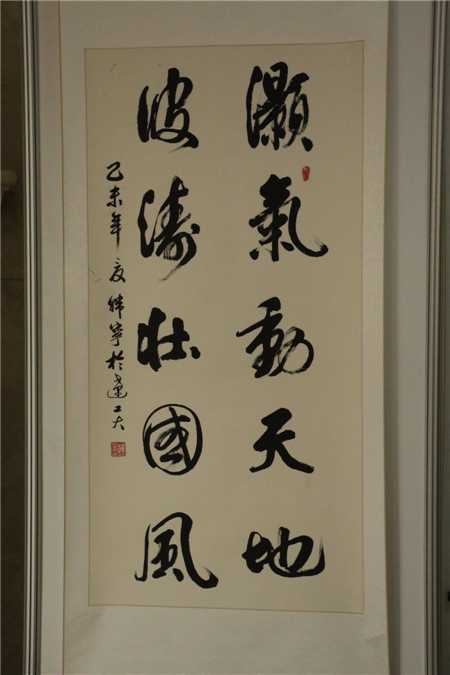 灝氣動天地
波濤壯國風
乙未年夏 寧於遼工大